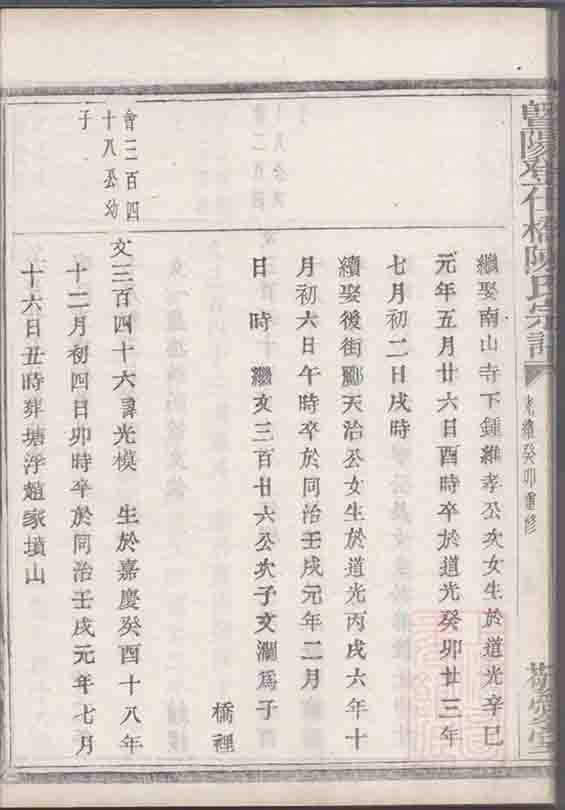 暨陽登仕橋陳氏宗譜
光緒癸卯重修
敬愛堂
繼娶南山寺下鍾維孝公次女生於道光辛巳
元年五月廿六日酉時卒於道光癸卯廿三年
七月初二日戌時
續娶後街酈天治公女生於道光丙戌六年十
月初六日午時卒於同治壬戌元年二月
日 時 繼文三百廿六公次子文瀾爲子
橋裡
會三百四
十八公幼
子
文三百四十六諱光模 生於嘉慶癸酉十八年
十二月初四日卯時卒於同治壬戌元年七月
十六日丑時葬塘浮趙家墳山